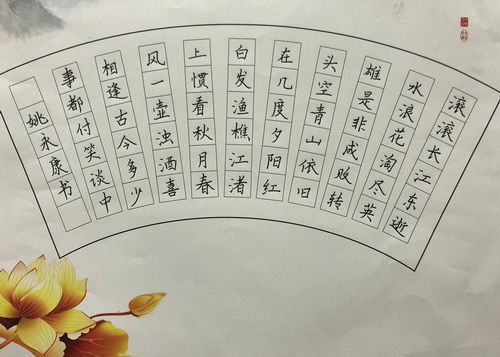 滚滚长江东逝
水浪花淘尽英
雄是非成败转
头空青山依旧
在几度夕阳红
白发渔樵江渚
上惯看秋月春
风一壶浊酒喜
相逢古今多少
事都付笑谈中
姚永康书